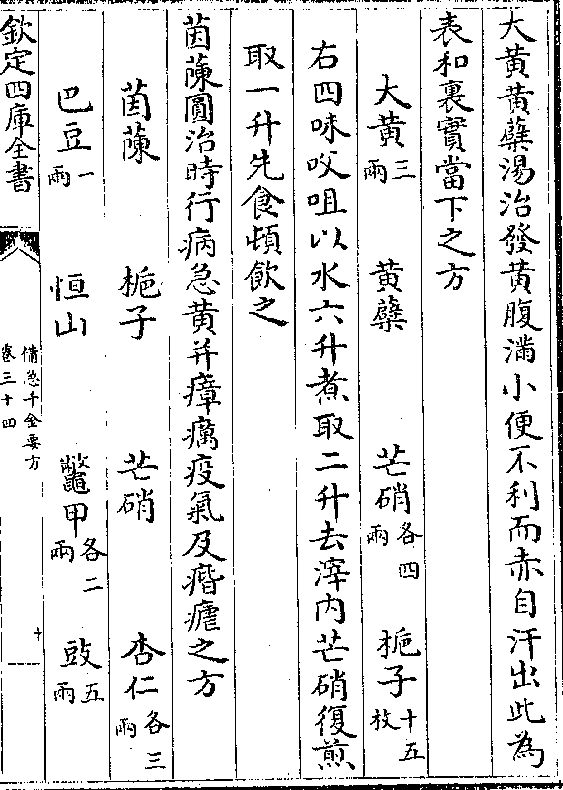 大黄黄蘗湯治發黄腹滿小便不利而赤自汗出此為
表和裏實當下之方
大黄三兩 黄蘗 芒硝各四兩 梔子十五枚
右四味㕮咀以水六升煮取二升去滓内芒硝復煎
取一升先食頓飲之
茵蔯圓治時行病急黄并瘴癘疫氣及痎瘧之方
茵蔯 梔子 芒硝 杏仁各三兩
巴豆一兩 恒山 鼈甲各二兩 豉五兩
欽定四庫全書
備急千金要方
卷三十四
十